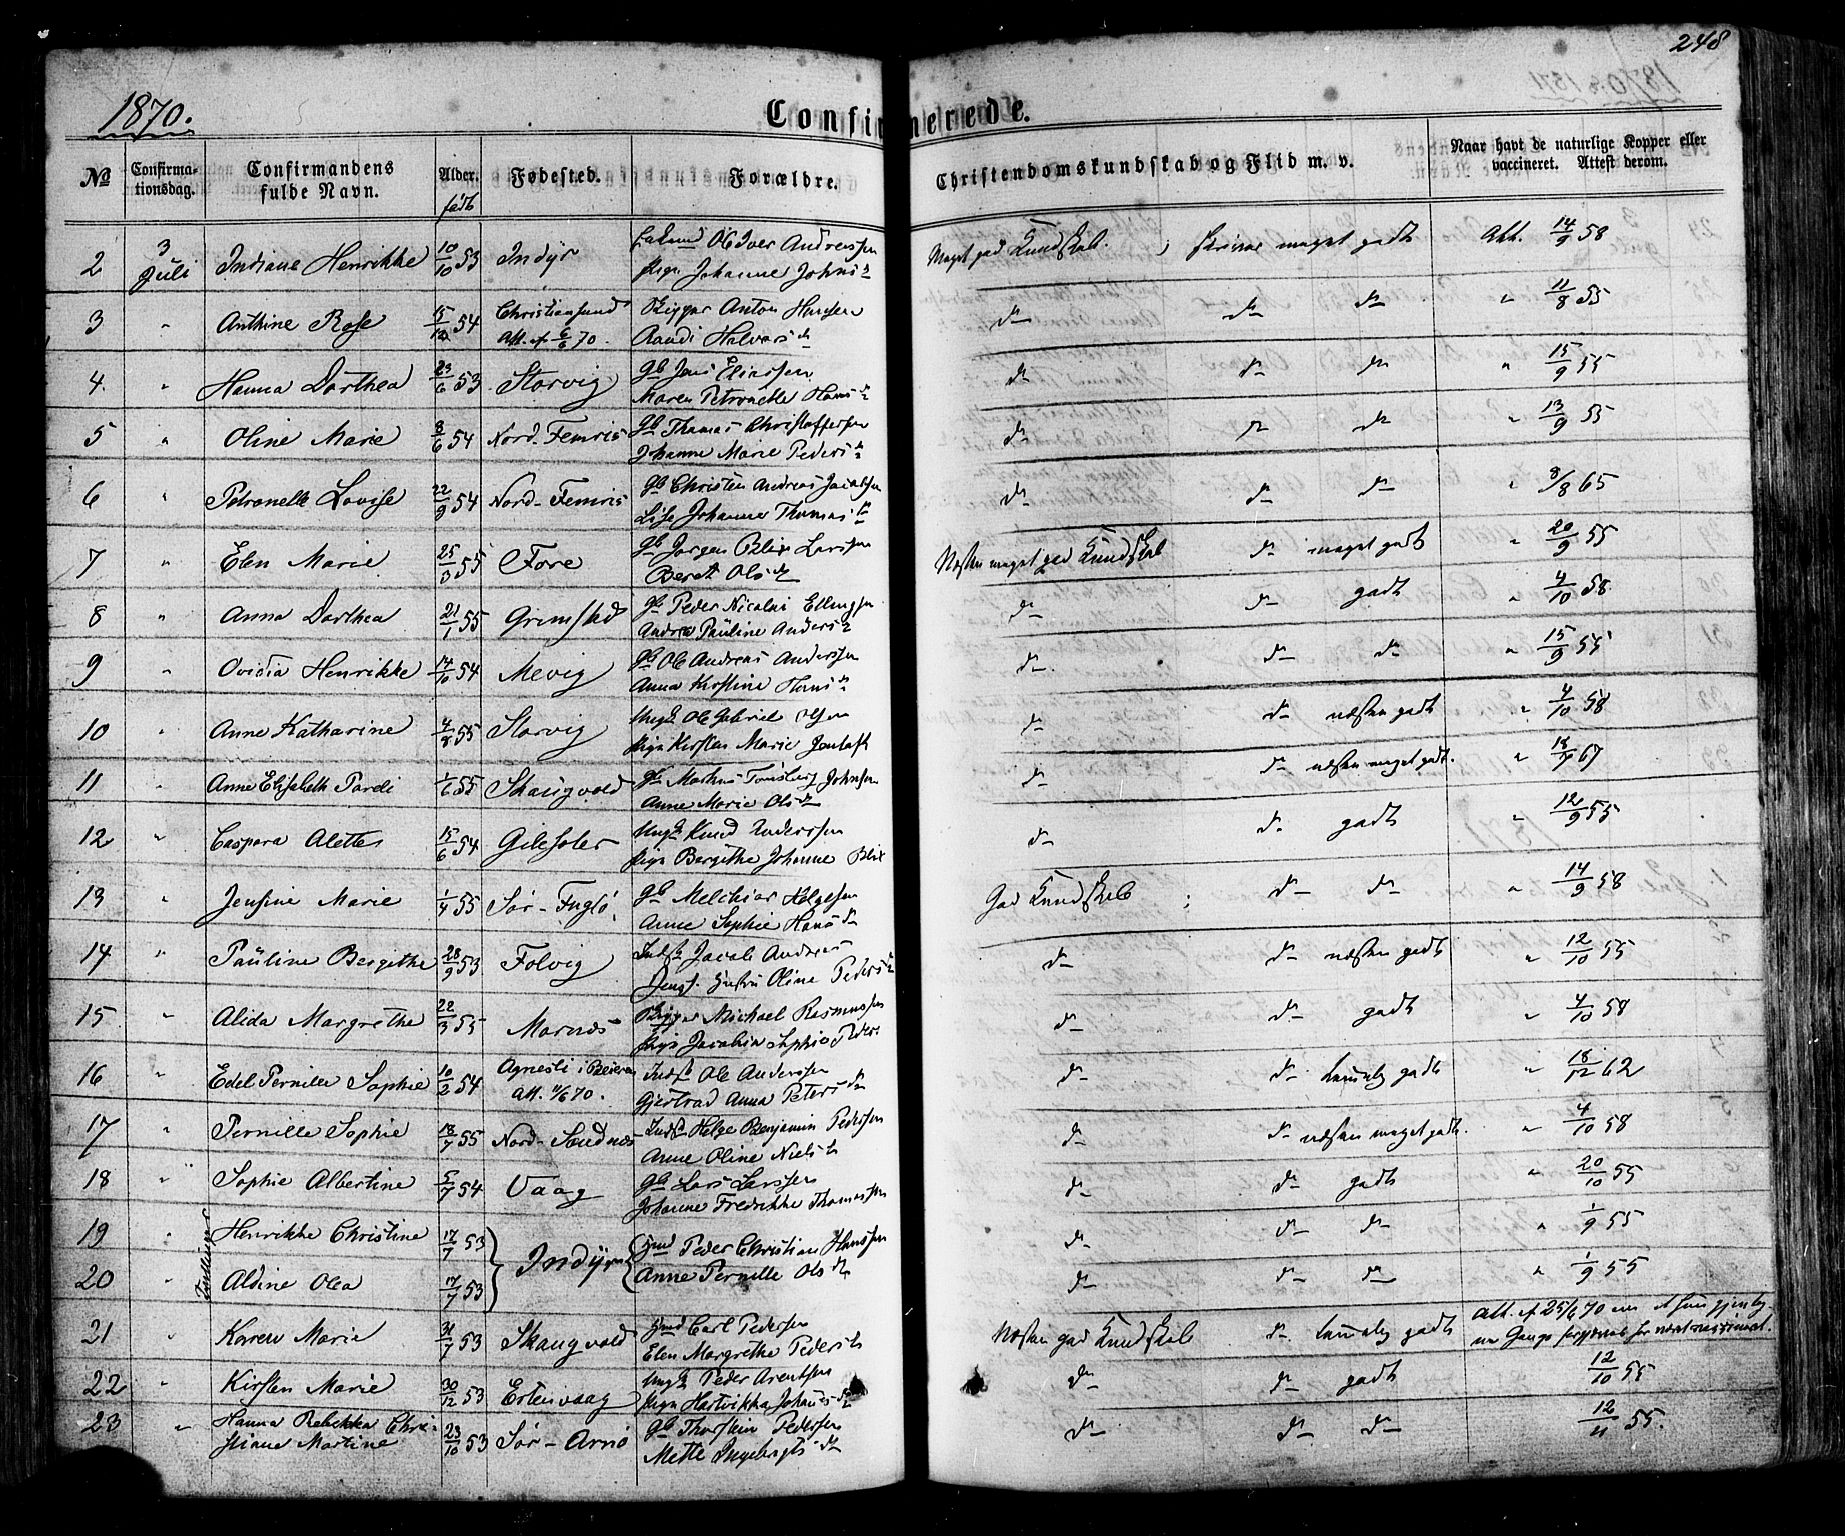 248
1870.
Confirmerede.
No
Confirma-
tionsdag.
Confirmandens
fulde Navn.
Alder.
født
Fødested.
Forældre.
Christendomskundskab og Flid m. v.
Naar havt de naturlige Kopper eller
vaccineret. Attest derom.
2 3 Juli Indiane Henrikke 10/10 53 Indyr Ole Iver Andreassen
Pige Johanne Johnsd. Meget god Kundskab. ; skriver meget godt Att. 14/9 58
3 " Anthine Rose 15/12 54 Christiansund
Att. af 6/6 70. Rigger Anton Hansen
Randi Halvorsd. do do do " 11/8 55
4. " Hanna Dorthea 23/6 53 Storvig Gb Jens Eliassen
Maren Petronelle Hansd. do do do " 15/9 55
5 " Oline Marie 8/6 54 Nord-Femris Gb Thomas Christoffersen
Johanne Marie Pedersd. do do do " 13/9 55
6 " Petronelle Lovise 22/9 54 Nord-Femris Gb Christen Andreas Jacobsen
Lise Johanne Thomasd. do do do " 8/8 65
7 " Elen Marie 25/3 55 Fore Gb Jørgen Blix Larssen
Beret Olsd. Næsten meget god Kundskab do meget godt " 20/9 55
8 " Anna Dorthea 21/1 55 Grimstad Gb Peder Nicolai Ellingsen
Andrea Pauline Andersd. do do godt " 4/10 58.
9 " Ovidia Henrikke 14/10 54 Mevig Gb Ole Andreas Anderssen
Anna Kirstine Hansd. do. do do " 15/9 55
10 " Anne Katharine 4/8 55 Storvig Ungk Ole Gabriel Olsen
Pige Kirsten Marie do do næsten godt " 4/10 58
11 " Anne Elisabeth Pardi 1/6 55 Skaugvold Gb Markus Tønsberg Johnsen
Anne Marie Olsd. do do næsten meget godt. " 67
12 " Caspara Alette 15/6 54 Gilesaler Ungk Knud Anderssen
Pige Bergithe Johanne Blix do do godt " 12/9 55
13 " Jensine Marie 1/4 55 Sør-Fuglø, Gb Melchior Helgesen
Anne Sophie Hansd. God Kundskab ; do do " 14/9 58
14 " Pauline Bergithe 28/9 53 Folvig Indst Jacob Andreas
Jens. Hustru Oline Pedersd. do do næsten godt " 12/10 55
15 " Alida Margrethe 22/3 55 Marnæs Rigger Michael Rasmussen
Pige Jacobia Sophie Peders do do godt " 4/10 58
16 " Edel Pernille Sophie 10/2 54 Agnesli i Beieren
Att. 11/6 70. Indst Ole Anderssen
Gjertrud Anna Petersd. do do temmelig godt " 18/12 62
17 " Pernille Sophie 18/7 55 Nord-Sandnæs Indst Helge Benjamin Pedersen
Anne Oline Nielsd. do do næsten meget godt. " 4/10 58
18 " Sophie Albertine 5/7 54 Vaag Gb Lars Larssen
Johanne Fredrikke Thomassen do do godt " 20/10 55
Tvillinger
19 " Henrikke Christine 17/7 53 Indyr Hmd Peder Christian Hanssen
Anne Pernille Olsd. do do do " 1/9 55
20 " Aldine Olea 17/7 53 do do do " 1/9 55
21 " Karen Marie 31/7 53 Skaugvold Hmd Carl Pedersen
Elen Margrethe Pedersd. Næsten god Kundskab do temmelig godt Att. af 25/6 70 om at hun
Gange forgjæves
22 " Kirsten Marie 30/12 53 Ertenvaag Ungk Peder Arentsen
Pige Hartvikka Johansd. do do godt 12/10 55
23 " Hanna Rebekka Chri-
stiane Martine 23/10 53 Sør-Arnø Gb Thorstein Pedersen
Mette Ingebrigtsd. do do do 12/11 55.